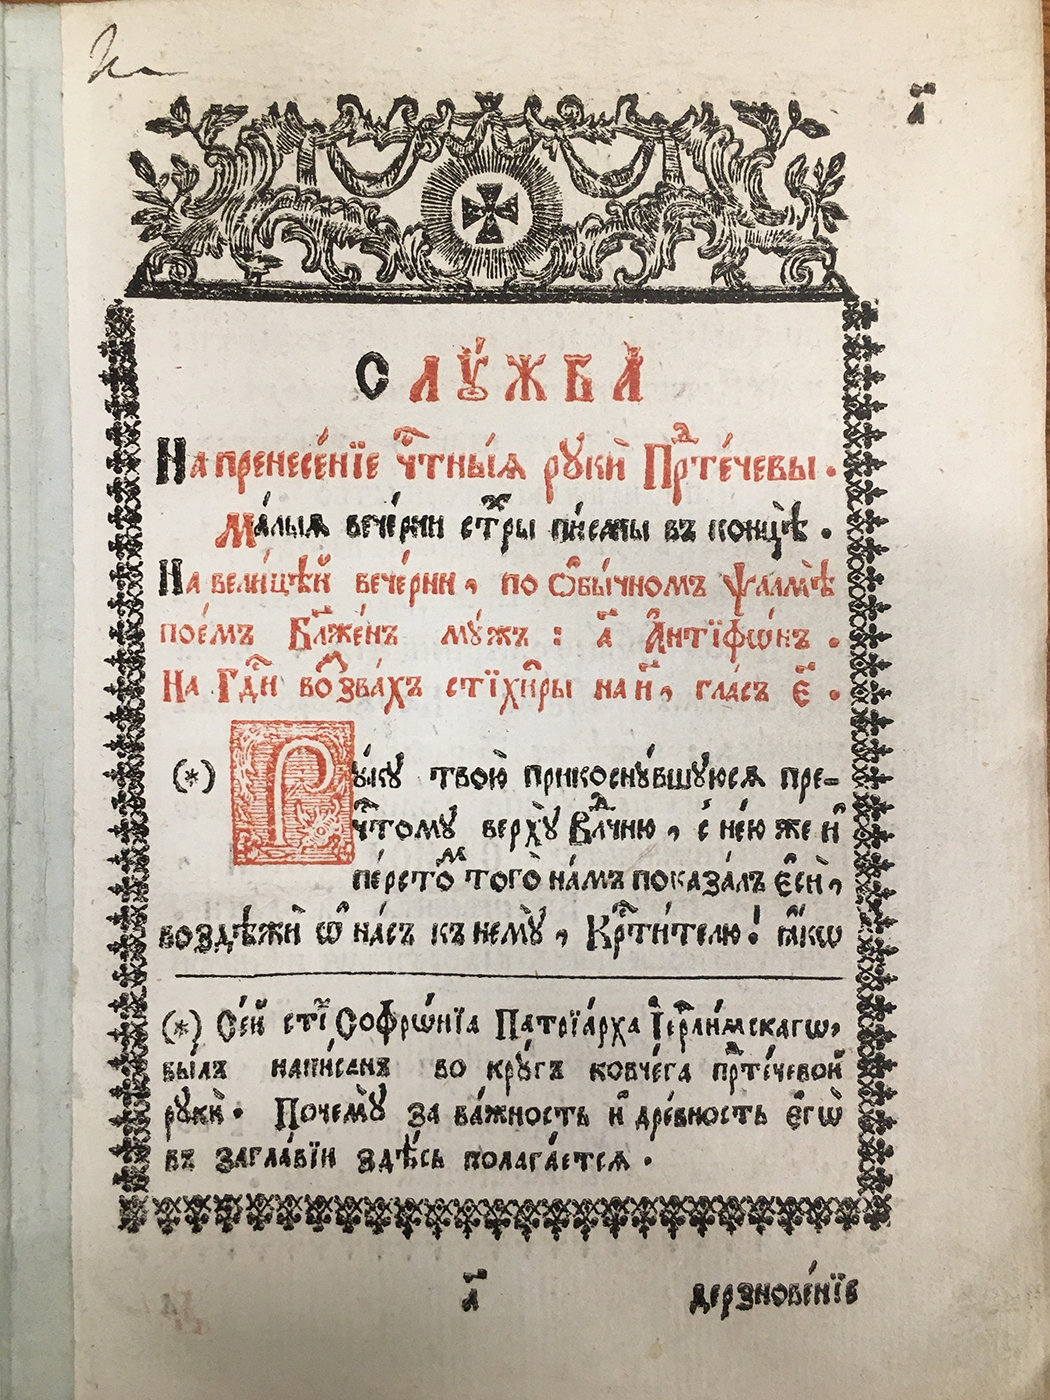 а҃
СЛУ́ЖБА̀
На пренесе́нїе чⷭ҇тны́ѧ рꙋкѝ Прⷣте́чевы.
Ма́лыѧ вече́рни стⷯры пи́саны въ концѣ̀.
На вели́цѣй вече́рни, по ѻ҆бы́чномъ ѱалмѣ̀
пое́мъ Бл҃же́нъ мꙋ́жъ: а҃ А҆нтїфѡ́нъ.
На Гдⷭ҇и воззва́хъ стїхи̑ры на и҃, гла́съ є҃.
(*) Рꙋ́кꙋ твою̀ прикоснꙋ́вшꙋюсѧ пре-
чⷭ҇томꙋ верхꙋ̀ Влⷣчню, с не́ю же и҆
пе́рстоⷨ того̀ на́мъ показа́лъ є҆сѝ,
воздѣжѝ ѡ҆ на́съ къ немꙋ̀, Крⷭ҇ти́телю! ꙗ҆́кѡ
(*) Се́й стⷯї Софрѡ́нїа Патрїа́рха І҆ерⷭ҇ли́мскагѡ,
бы́лъ напи́санъ во крꙋ́гъ ковче́га прⷣте́чевой
рꙋкѝ. Почемꙋ̀ за ва́жность и҆ дре́вность є҆гѡ̀
въ загла́вїи здѣ́сь полага́етсѧ.
а҃
дерзнове́нїе